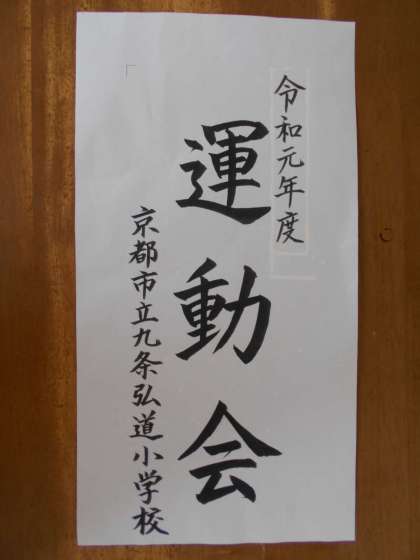 令和元年度
運動会
京都市立九条弘道小学校